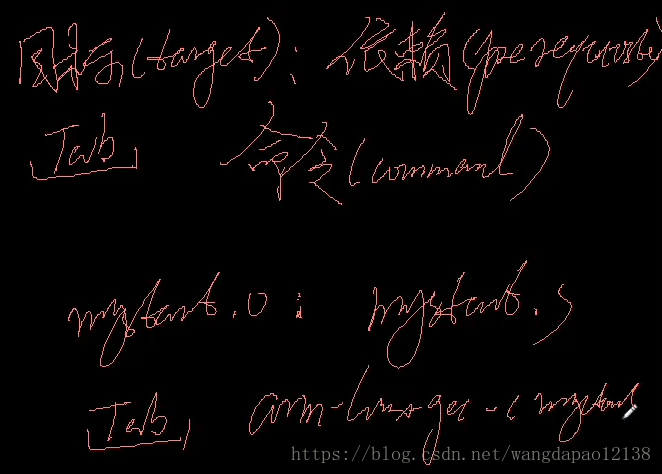 目标(target): 依赖(prerequisite
Tab 命令(command)
mystart.o : mystart.s
Tab arm-linux-gcc -c mystart
https://blog.csdn.net/wangdapao12138